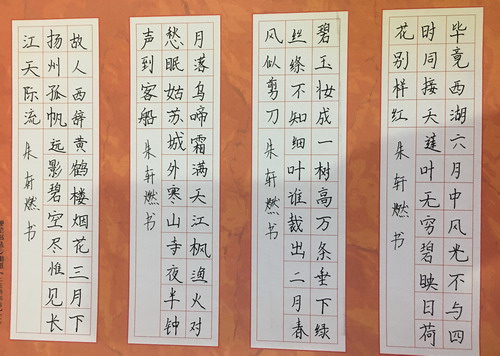 毕竟西湖六月中风光不与四
时同接天莲叶无穷碧映日荷
花别样红 朱轩燃书
碧玉妆成一树高万条垂下绿
丝绦不知细叶谁裁出二月春
风似剪刀 朱轩燃书
月落乌啼霜满天江枫渔火对
愁眠姑苏城外寒山寺夜半钟
声到客船 朱轩燃书
故人西辞黄鹤楼烟花三月下
扬州孤帆远影碧空尽惟见长
江天际流 朱轩燃书